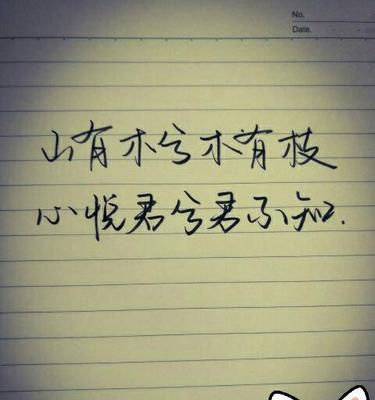 No.
Date.
山有木兮木有枝
心悦君兮君不知.